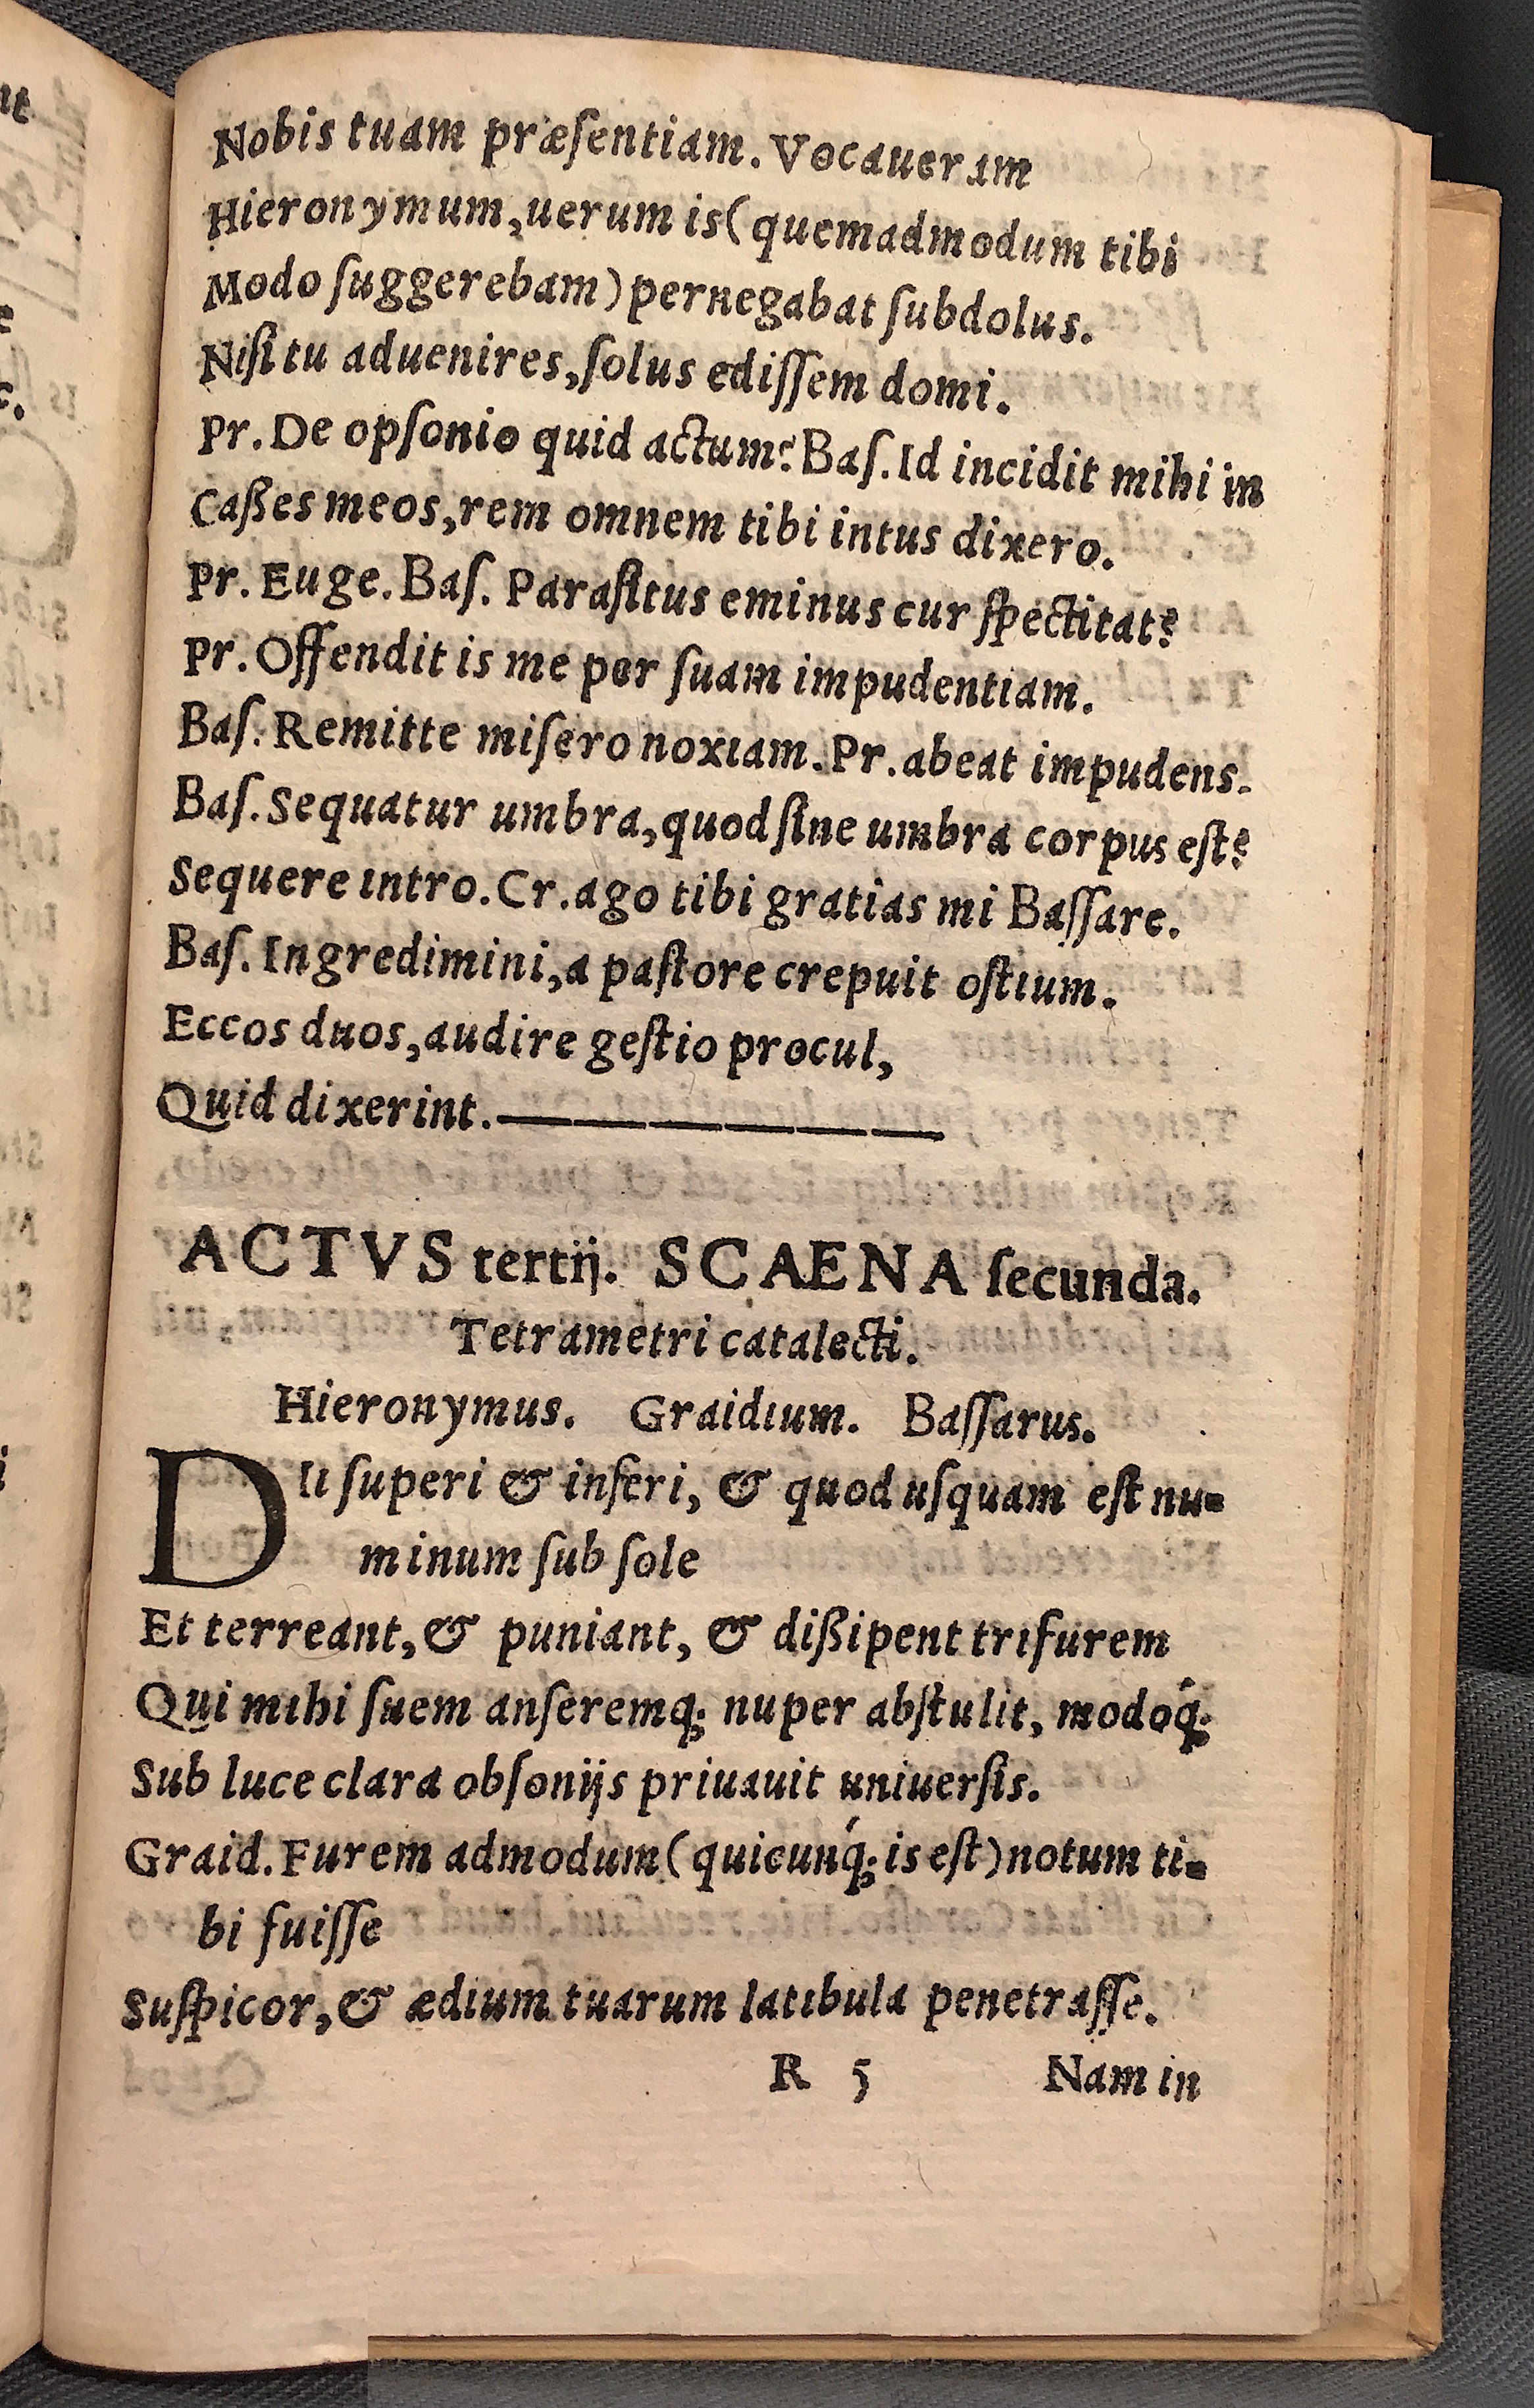 Nobis tuam præſentiam. Vocaueram
Hieronymum, uerum is (quemadmodum tibi
Modo ſuggerebam) pernegabat ſubdolus.
Niſi tu aduenires, ſolus ediſſem domi.
Pr. De opſonio quid actum? Baſ. Id incidit mihi in
Caßes meos, rem omnem tibi intus dixero.
Pr. Euge. Baſ. Paraſitus eminus cur ſpectitat?
Pr. Offendit is me per ſuam impudentiam.
Baſ. Remitte miſero noxiam. Pr. abeat impudens.
Baſ. Sequatur umbra, quod ſine umbra corpus eſt?
Sequere intro. Cr. ago tibi gratias mi Baſſare.
Baſ. Ingredimini, a paſtore crepuit oſtium.
Eccos duos, audire geſtio procul,
Quid dixerint. ——————
ACTVS tertij. SCAENA ſecunda.
Tetrametri catalecti.
Hieronymus. Graidium. Baſſarus.
DIi ſuperi & inferi, & quod uſquam eſt nu-
minum ſub ſole
Et terreant, & puniant, & dißipent trifurem
Qui mihi ſuem anſeremq; nuper abſtulit, modoq́;
Sub luce clara obſonijs priuauit uniuerſis.
Graid. Furem admodum (quicunq́; is eſt) notum ti-
bi fuiſſe
Suſpicor, & ædium tuarum latibula penetraſſe.
R 5 Nam in